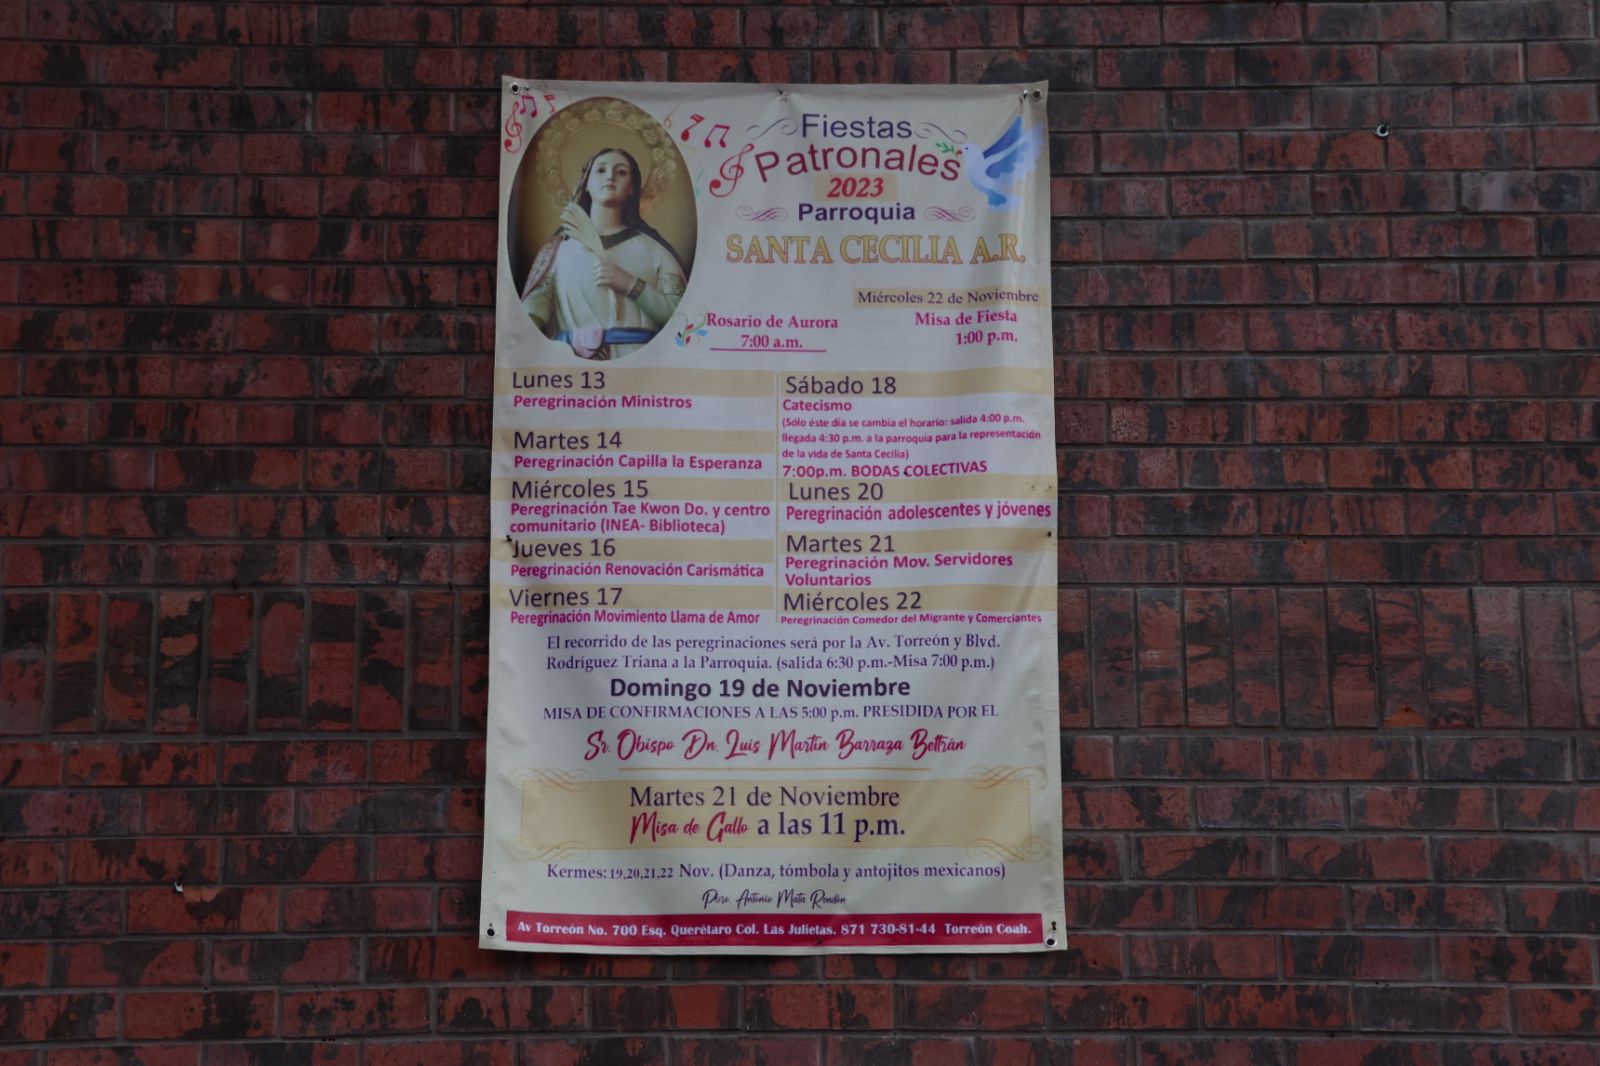 Fiestas
Patronales
2023
Parroquia
SANTA CECILIA A.R.
Miércoles 22 de Noviembre
Rosario de Aurora
7:00 a.m.
Misa de Fiesta
1:00 p.m.
Lunes 13
Peregrinación Ministros
Martes 14
Peregrinación Capilla la Esperanza
Miércoles 15
Peregrinación Tae Kwon Do. y centro
comunitario (INEA- Biblioteca)
Jueves 16
Peregrinación Renovación Carismática
Viernes 17
Peregrinación Movimiento Llama de Amor
Sábado 18
Catecismo
(Sólo éste día se cambia el horario: salida 4:00 p.m.
llegada 4:30 p.m. a la parroquia para la representación
de la vida de Santa Cecilia)
7:00p.m. BODAS COLECTIVAS
Lunes 20
Peregrinación adolescentes y jóvenes
Martes 21
Peregrinación Mov. Servidores
Voluntarios
Miércoles 22
Peregrinación Comedor del Migrante y Comerciantes
El recorrido de las peregrinaciones será por la Av. Torreón y Blvd.
Rodríguez Triana a la Parroquia. (salida 6:30 p.m.-Misa 7:00 p.m.)
Domingo 19 de Noviembre
MISA DE CONFIRMACIONES A LAS 5:00 p.m. PRESIDIDA POR EL
Sr. Obispo Dn. Luis Martín Barraza Beltrán
Martes 21 de Noviembre
Misa de Gallo a las 11 p.m.
Kermes: 19,20,21,22 Nov. (Danza, tómbola y antojitos mexicanos)
Pbro. Antonio Mata Rendón
Av Torreón No. 700 Esq. Querétaro Col. Las Julietas. 871 730-81-44 Torreón Coah.